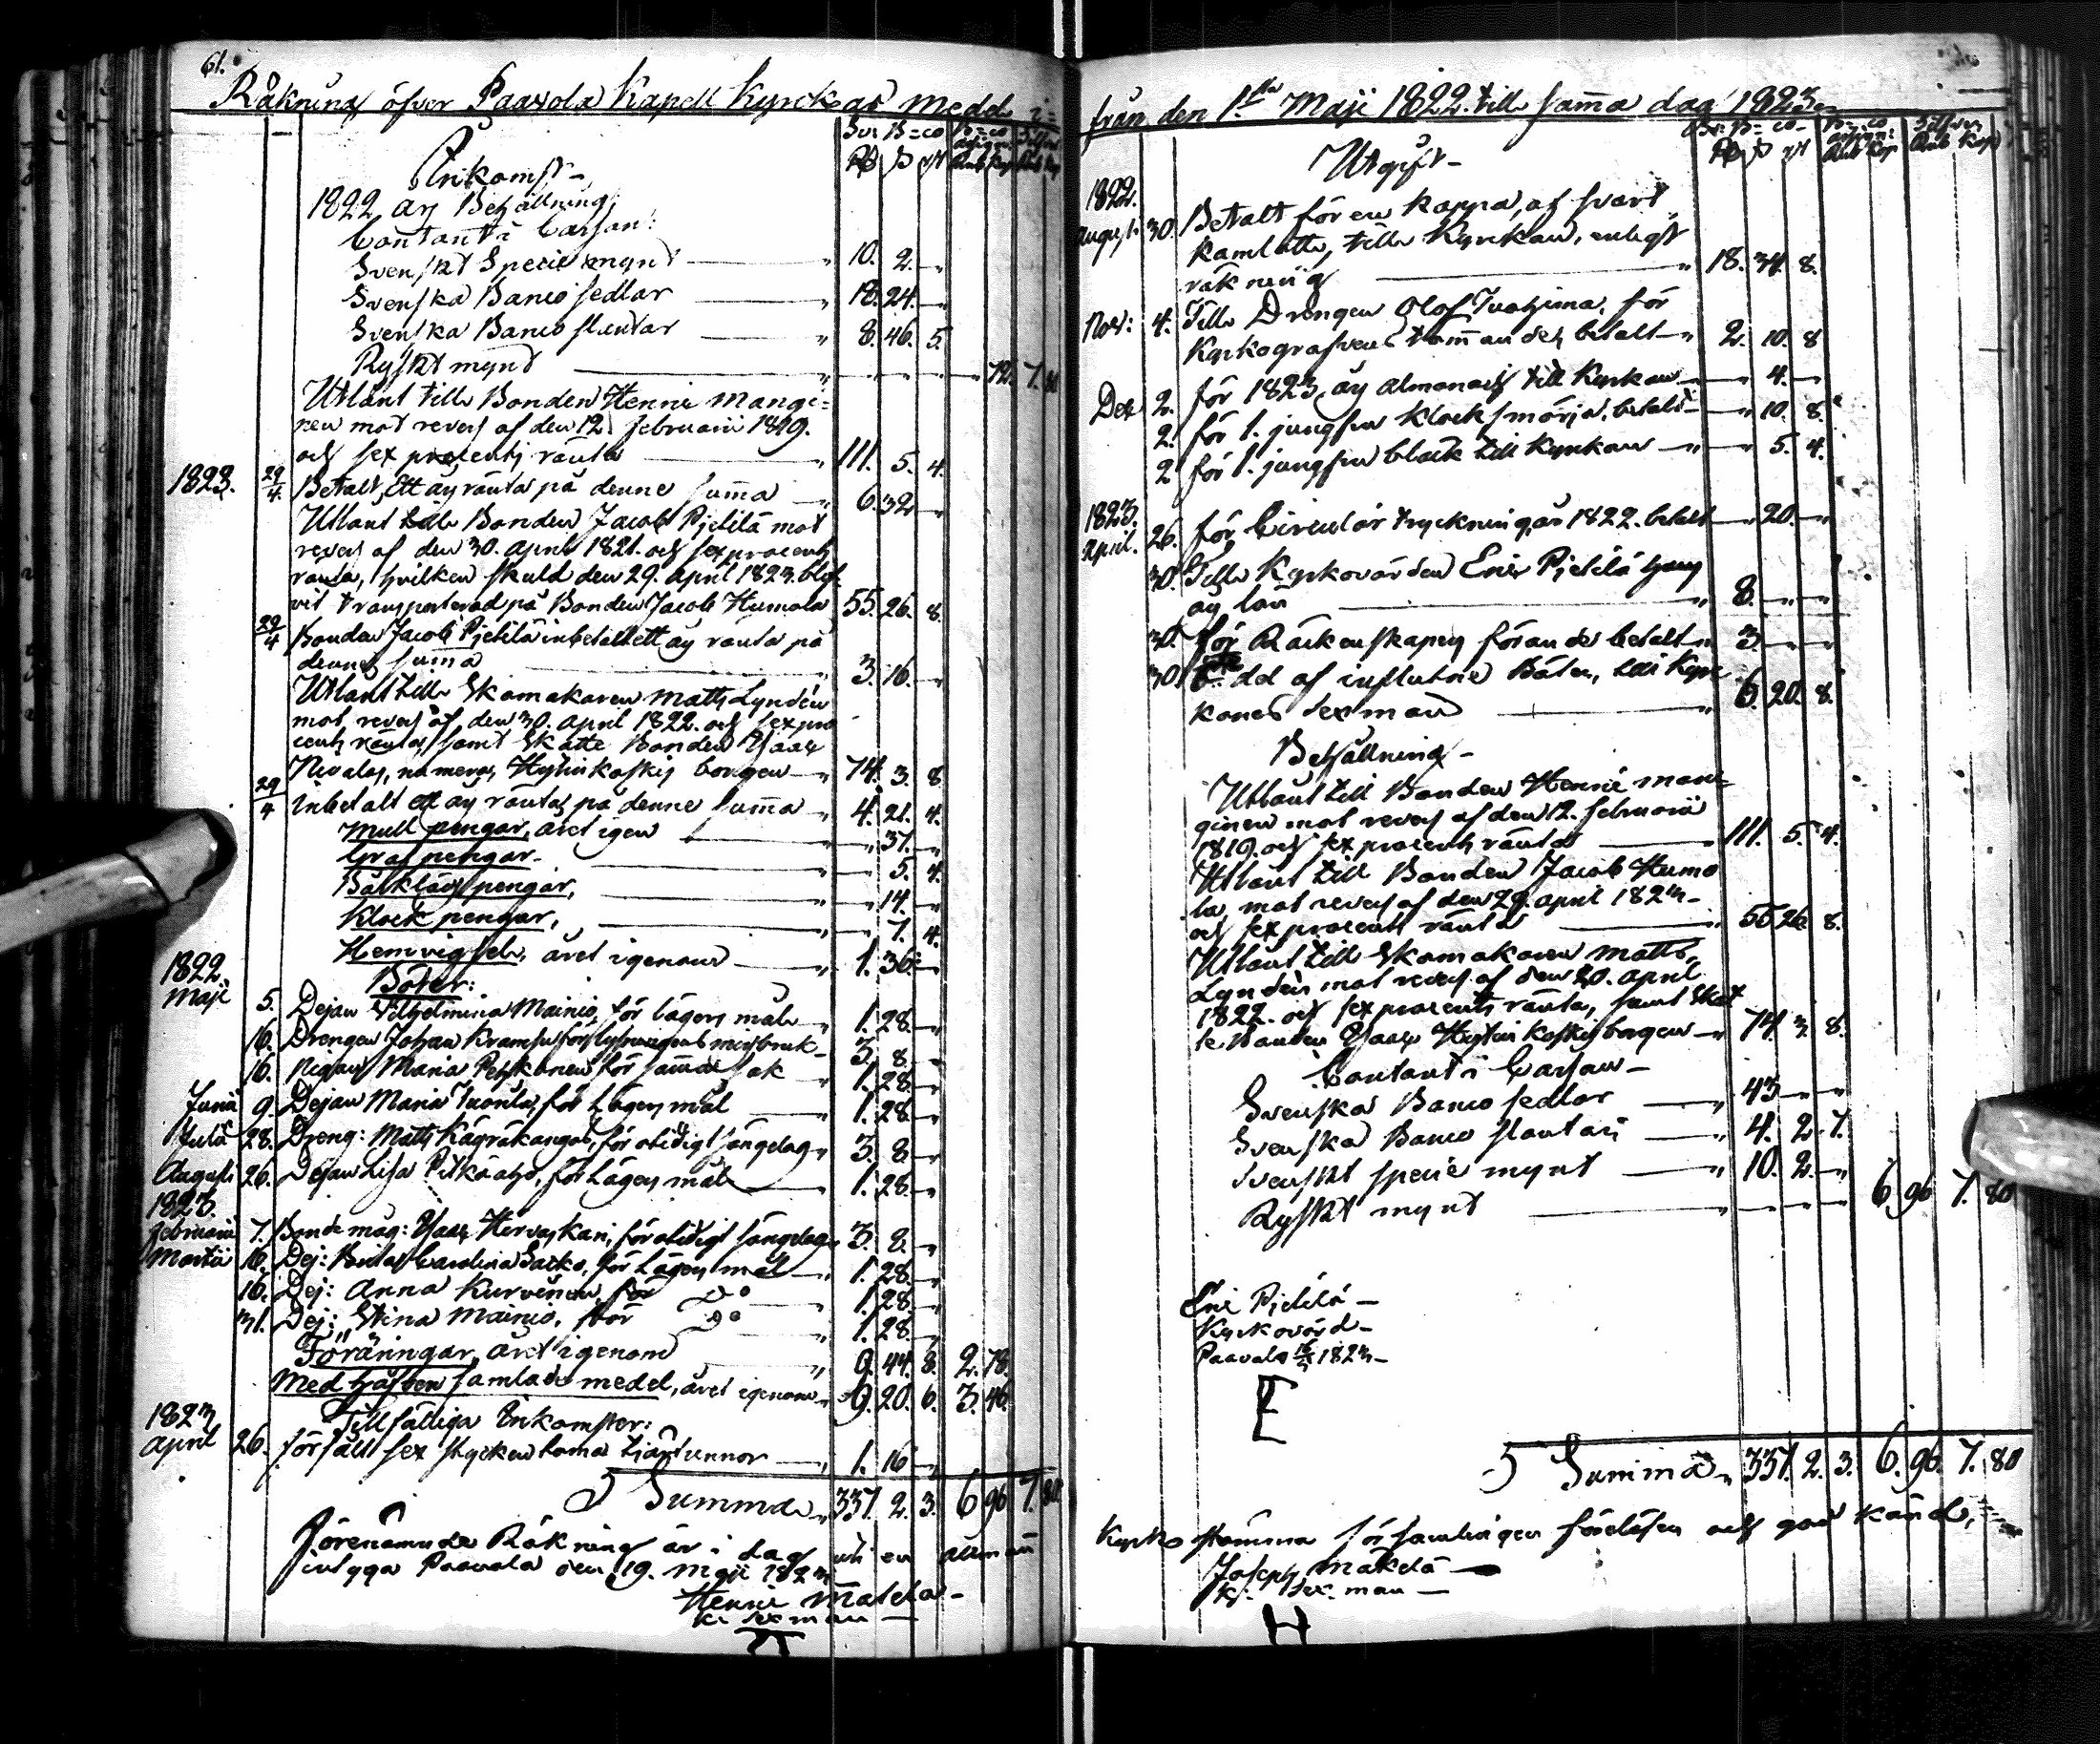 61.
Räkning öfver Paavola Kapell Kyrckas medel i=
Sv: B=co B=co Silfver
Rd ß rst Rub Kop Rub Kop
Inkomst-
1822 års Behållning
Contant i Cassan:
Svenskt Specie mynt — " 10. 2. "
Svenska Banco sedlar — " 18. 24. "
Svenska Banco slantar — " 8. 46. 5.
Ryskt mynt — " " " " 72. 7. 80
Utlånt till Bonden Henric Mangi=
nen mot revers af den 12. Februarii 1819.
och sex procents ränta — " 111. 5. 4.
1823. 29/4. Betalt, Ett års ränta på denne summa — " 6. 32 "
Utlånt till Bonden Jacob Pietilä mot
revers af den 30. April 1821. och sex procents
ränta, hvilken skuld den 29. April 1823. blef=
vit transporterad på Bonden Jacob Humala 55. 26. 8.
29/4 Bonden Jacob Pietilä inbetalt ett års ränta på
denne summa — " 3. 16. "
Utlånt till Skomakaren Matts Lyndén
mot revers af, den 30. April 1822. och sex pro
cents ränta, samt Skatte Bonden Isaac
Nivalas, numera, Hyttinkoskis borgen — " 74. 3. 8
29/4 inbetalt ett års ränta på denne summa — " 4. 21. 4.
Mull pengar, året igen — " " 37. "
Graf pengar — " " 5. 4.
Bårklädspengar, — " " 14. "
Klock pengar, — " " 7. 4.
Hemvigsel, året igenom — " 1. 36. "
1822. Böter:
Maji 5. Dejan Vilhelmina Mainio, för lägers mål — " 1. 28. "
16. Drengen Johan Kramsu för lysningens missbruk — 3. 8. "
16. Pigan Maria Pehkonen för samma sak — " 1. 28. "
Junii 9. Dejan Maria Tuonila, för Lägers mål — " 1. 28. "
Julii 28. Dreng: Matts Kägräkangas, för otidigt sängelag " 3. 8. "
Augusti 26. Dejan Lisa Pitkäaho, för Lägers mål — " 1. 28. "
1823.
Februarii 7. Bonde måg: Isaac Hirvaskari, för otidigt sängelag " 3. 8. "
Martii 16. Dej: Carolina Sarko, för Lägers mål — " 1. 28. "
16. Dej: Anna Kurvinen, för Do — " 1. 28. "
31. Dej: Stina Mainio, för Do — " 1. 28. "
Föräringar, året igenom — " 9. 44. 8. 2. 78.
Med Håfven samlade medel, året igenom " 9. 20. 6. 3. 46.
1823 Tillfälliga Inkomster:
April 26. försålt sex stycken toma tjärtunnor — " 1. 16 "
Summa " 337. 2. 3. 6 96 7. 80
Förenämnde Räkning är i dag uti en allmän
intyga Paavola den 19. Maji 1823.
Henric Mäkelä-
K: Sexman —
från den 1sta Maji 1822. till samma dag 1823.
Sv: B=co B=co Silfver
Rd ß rst Rub Kop Rub Kop
Utgift-
1822.
Augusti 30. Betalt för en kappa, af svart
kamlott, till Kyrkan, enligt
räkning — " 18. 34. 8.
Nov: 4. Till Drengen Olof Tuohimaa, för
Kyrkografvens betalt — " 2. 10. 8
Dec 2. för 1823 års almanach till Kyrkan — " 4. "
2. för 1. jungfru klocksmörja, betalt — " 10. 8.
2 för 1. jungfru bläck till Kyrkan — " " 5. 4.
1823.
April. 26. för Circulär tryckning, år 1822. betalt — " 20. "
30. Till Kyrkovärden Eric Pietilä hans
års lön — " 8. " "
30. för Räkenskapens förande betalt " 3. " "
30. 6te dd af influtne Böter, till Kyr
kones sexman — " 6. 20. 8.
Behållning-
Utlånt till Bonden Henric Man=
ginen mot revers af den 12. Februarii
1819. och sex procents ränta — 111. 5. 4.
Utlånt till Bonden Jacob Huma
la, mot revers af den 29. April 1823-
och sex procents ränta — " 55 26. 8.
Utlånt till Skomakaren Matts,
Lyndén mot revers af den 30. April
1822. och sex procents ränta, samt Skat
te Bonden Isaac Hyttinkoskis borgen — " 74. 3. 8.
Contant i Cassan —
Svenska Banco sedlar — " 43 " "
Svenska Banco slantari — " 4. 2. 7.
Svenskt specie mynt — " 10. 2. "
Ryskt mynt — " " " 6 96 7. 80
Eric Pietilä —
Kyrkovärd —
Paavola 16/5 1823 —
Summa " 337. 2. 3. 6. 96. 7. 80
Kyrko stämma församlingen föreläsen och god känd,
Joseph Mäkelä —
K: Sex-man —
H